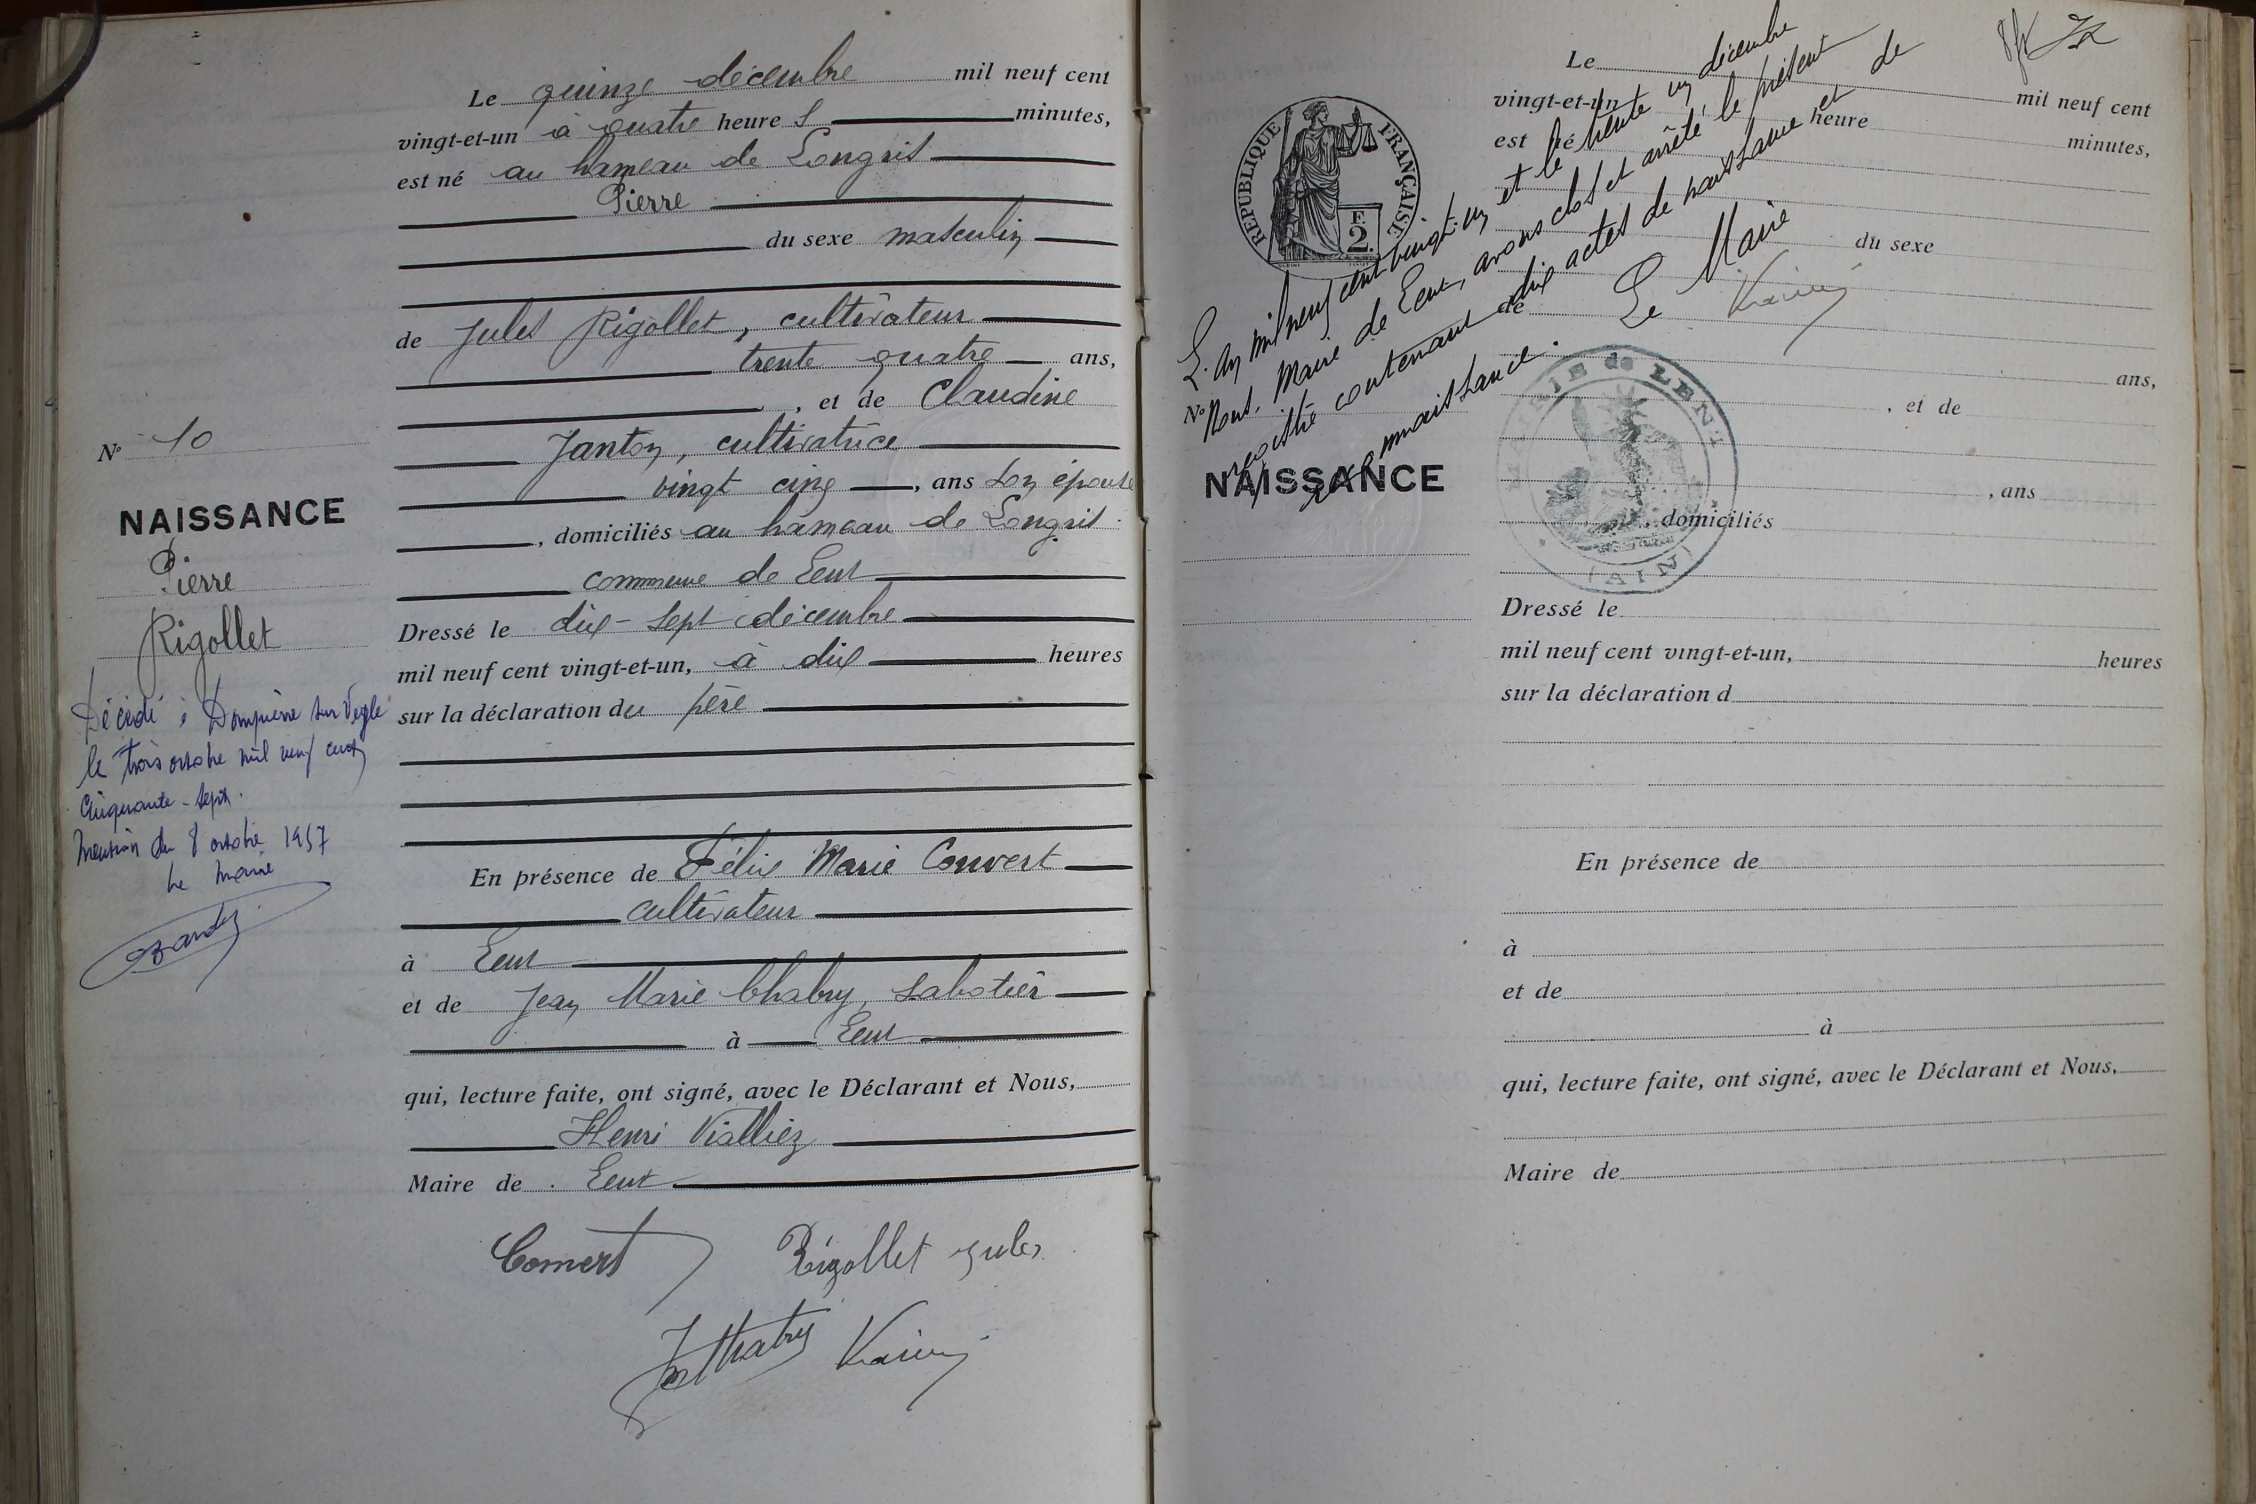 Le quinze décembre mil neuf cent
vingt-et-un à quatre heures minutes,
est né au hameau de Longris
Pierre
du sexe masculin
de Jules Rigollet, cultivateur
trente quatre ans,
, et de Claudine
Janton, cultivatrice
vingt cinq, ans son épouse
, domiciliés au hameau de Longris
commune de Lent
Dressé le dix-sept décembre
mil neuf cent vingt-et-un, à dix heures
sur la déclaration du père
En présence de Félix Marie Convert
cultivateur
à Lent
et de Jean Marie Chabry, sabotier
à Lent
qui, lecture faite, ont signé, avec le Déclarant et Nous,
Henri Viallier
Maire de Lent
Convert Rigollet Jules
N° 10
NAISSANCE
Pierre
Rigollet
Décédé à Dompierre sur Veyle
le trois octobre mil neuf cent
cinquante-sept.
Mention du 8 octobre 1957
Le Maire
RÉPUBLIQUE FRANÇAISE
F.
2.
L'an mil neuf cent vingt-un et le trente un décembre
Nous, Maire de Lent, avons clos et arrêté le présent
registre contenant dix actes de naissance et de
reconnaissance.
Le Maire
MAIRIE de LENT
(AIN)
Le mil neuf cent
vingt-et-un heure minutes,
est né
du sexe
de
ans,
, et de
, ans
, domiciliés
N°
NAISSANCE
Dressé le
mil neuf cent vingt-et-un, heures
sur la déclaration d
En présence de
à
et de
à
qui, lecture faite, ont signé, avec le Déclarant et Nous,
Maire de